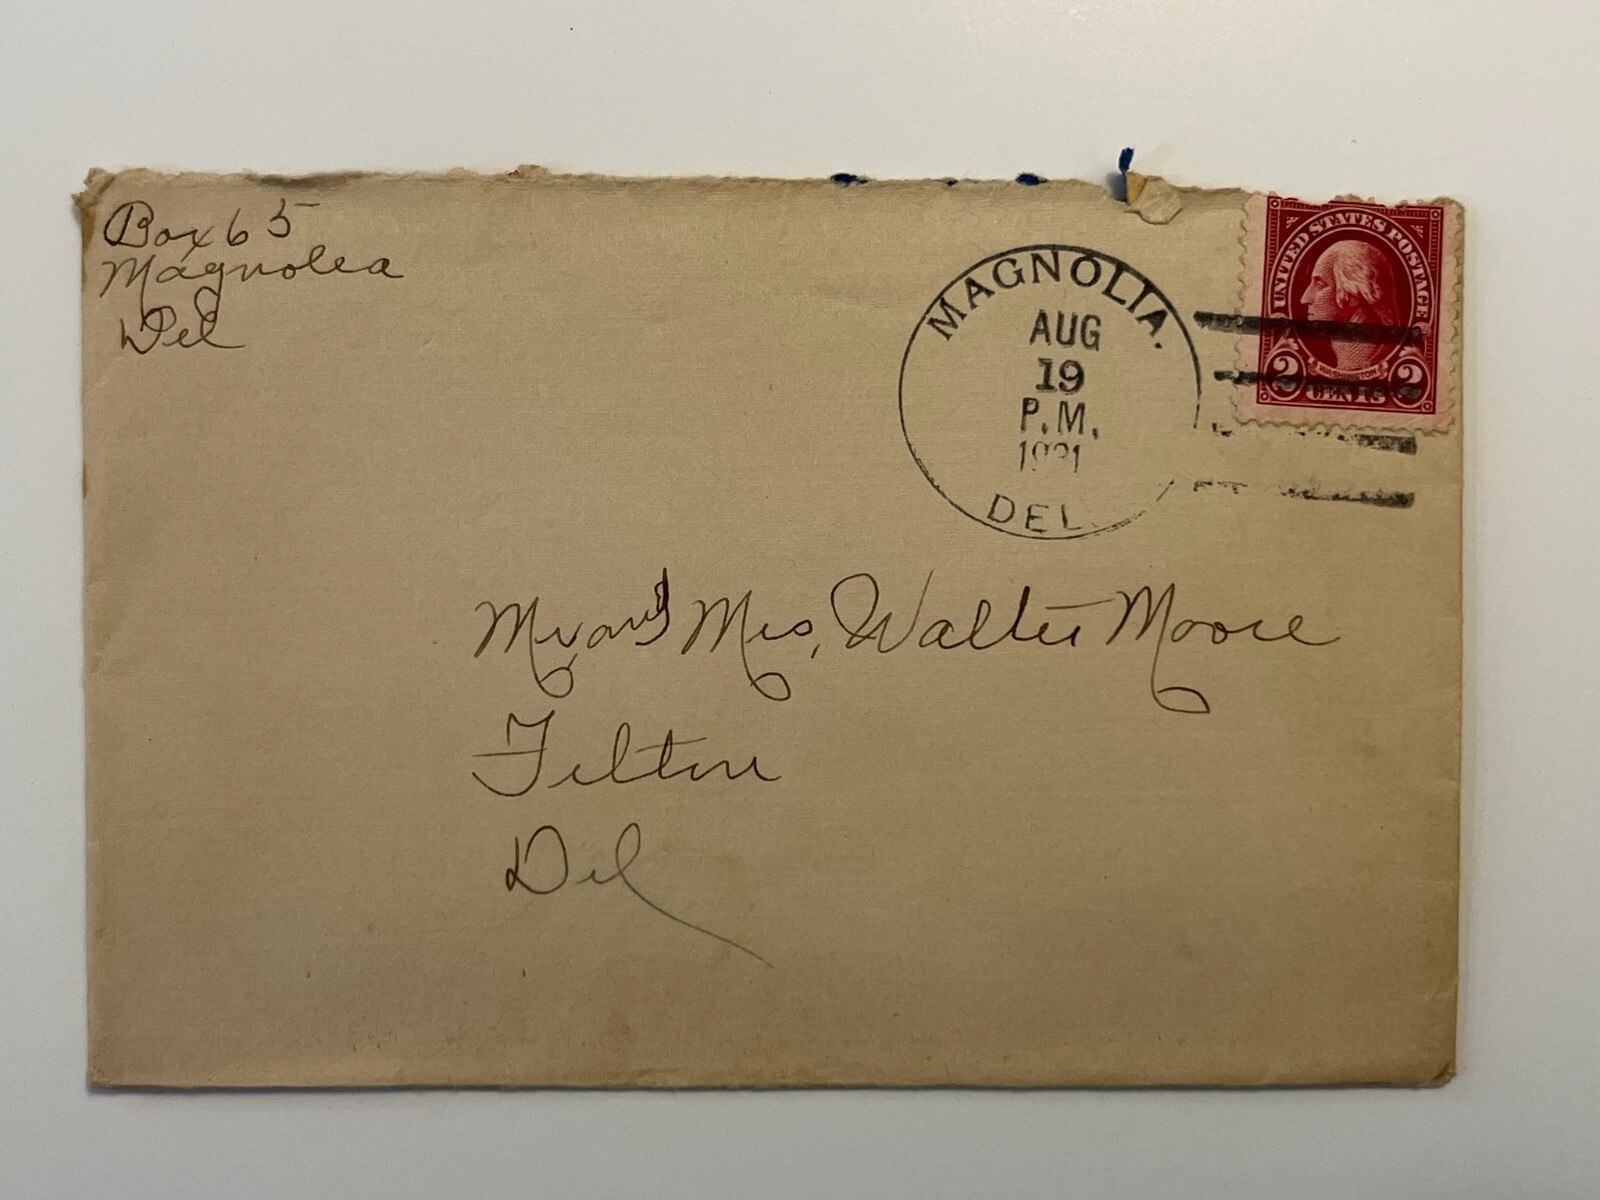 Box 65
Magnolia
Del
MAGNOLIA.
AUG
19
P.M.
DEL.
UNITED STATES POSTAGE
WASHINGTON
2 CENTS 2
Mr and Mrs, Walter Moore
Felton
Del